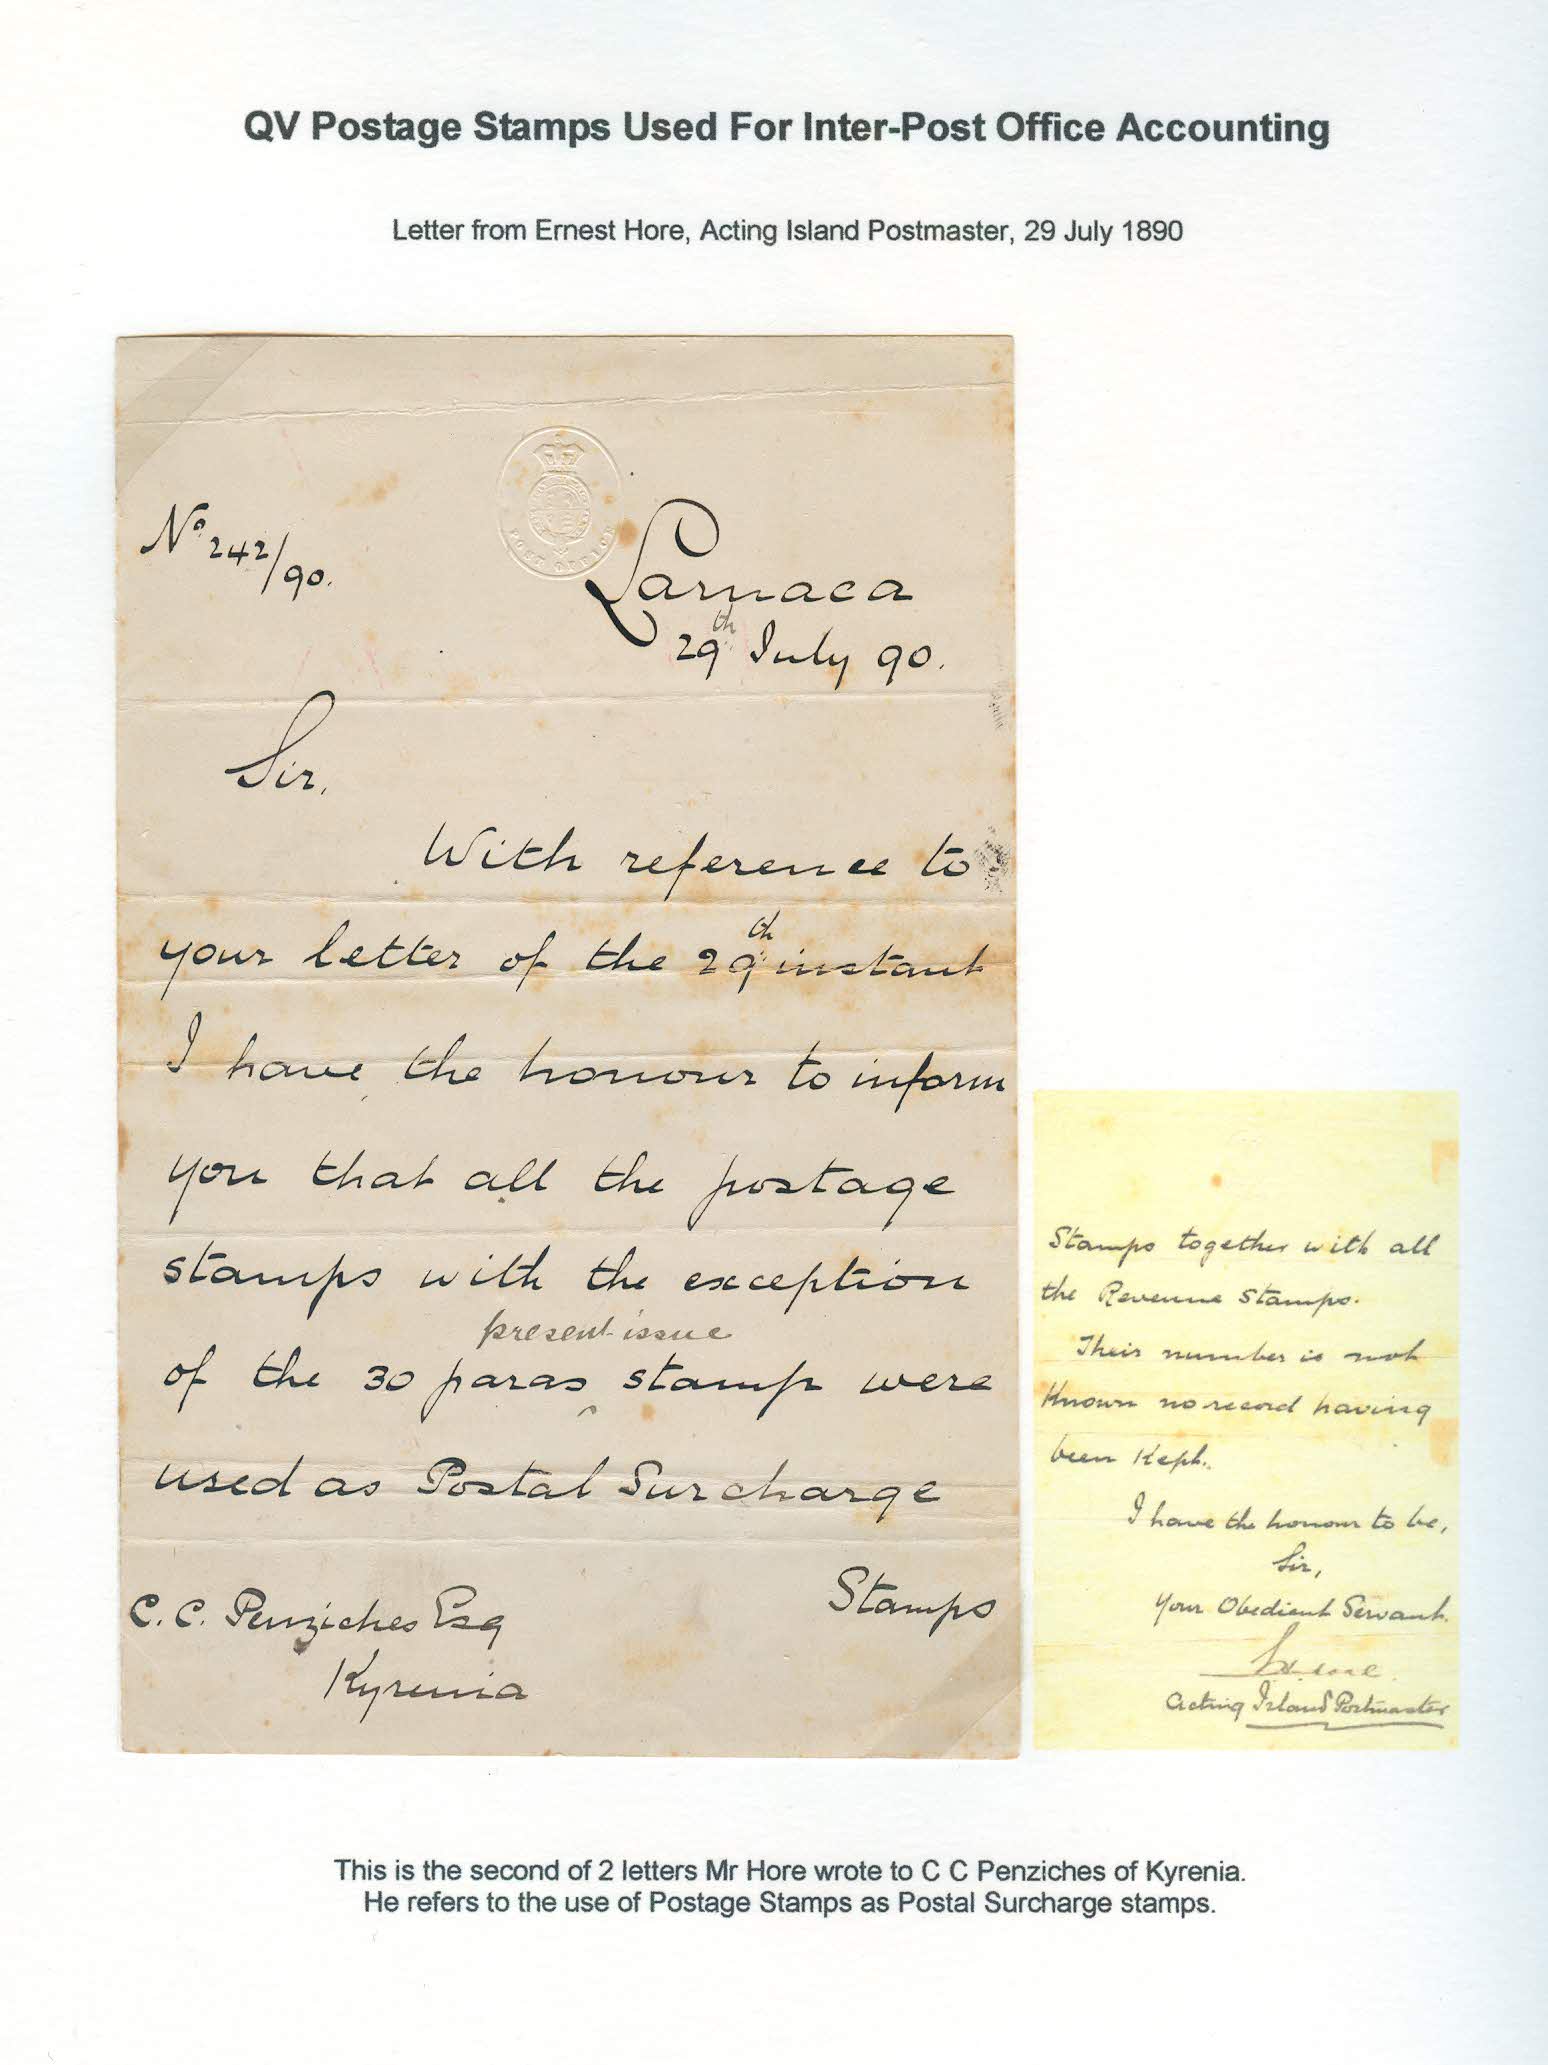 QV Postage Stamps Used For Inter-Post Office Accounting
Letter from Ernest Hore, Acting Island Postmaster, 29 July 1890
POST OFFICE
No 242/90.
Larnaca
29th July 90.
Sir,
With reference to
your letter of the 29th instant
I have the honour to inform
you that all the postage
stamps with the exception
present issue
of the 30 paras ^ stamp were
used as Postal Surcharge
Stamps
C. C. Penziches Esq
Kyrenia
Stamps together with all
the Revenue Stamps.
Their number is not
Known no record having
been Kept.
I have the honour to be,
Sir,
Your Obedient Servant.
Acting Island Postmaster
This is the second of 2 letters Mr Hore wrote to C C Penziches of Kyrenia.
He refers to the use of Postage Stamps as Postal Surcharge stamps.